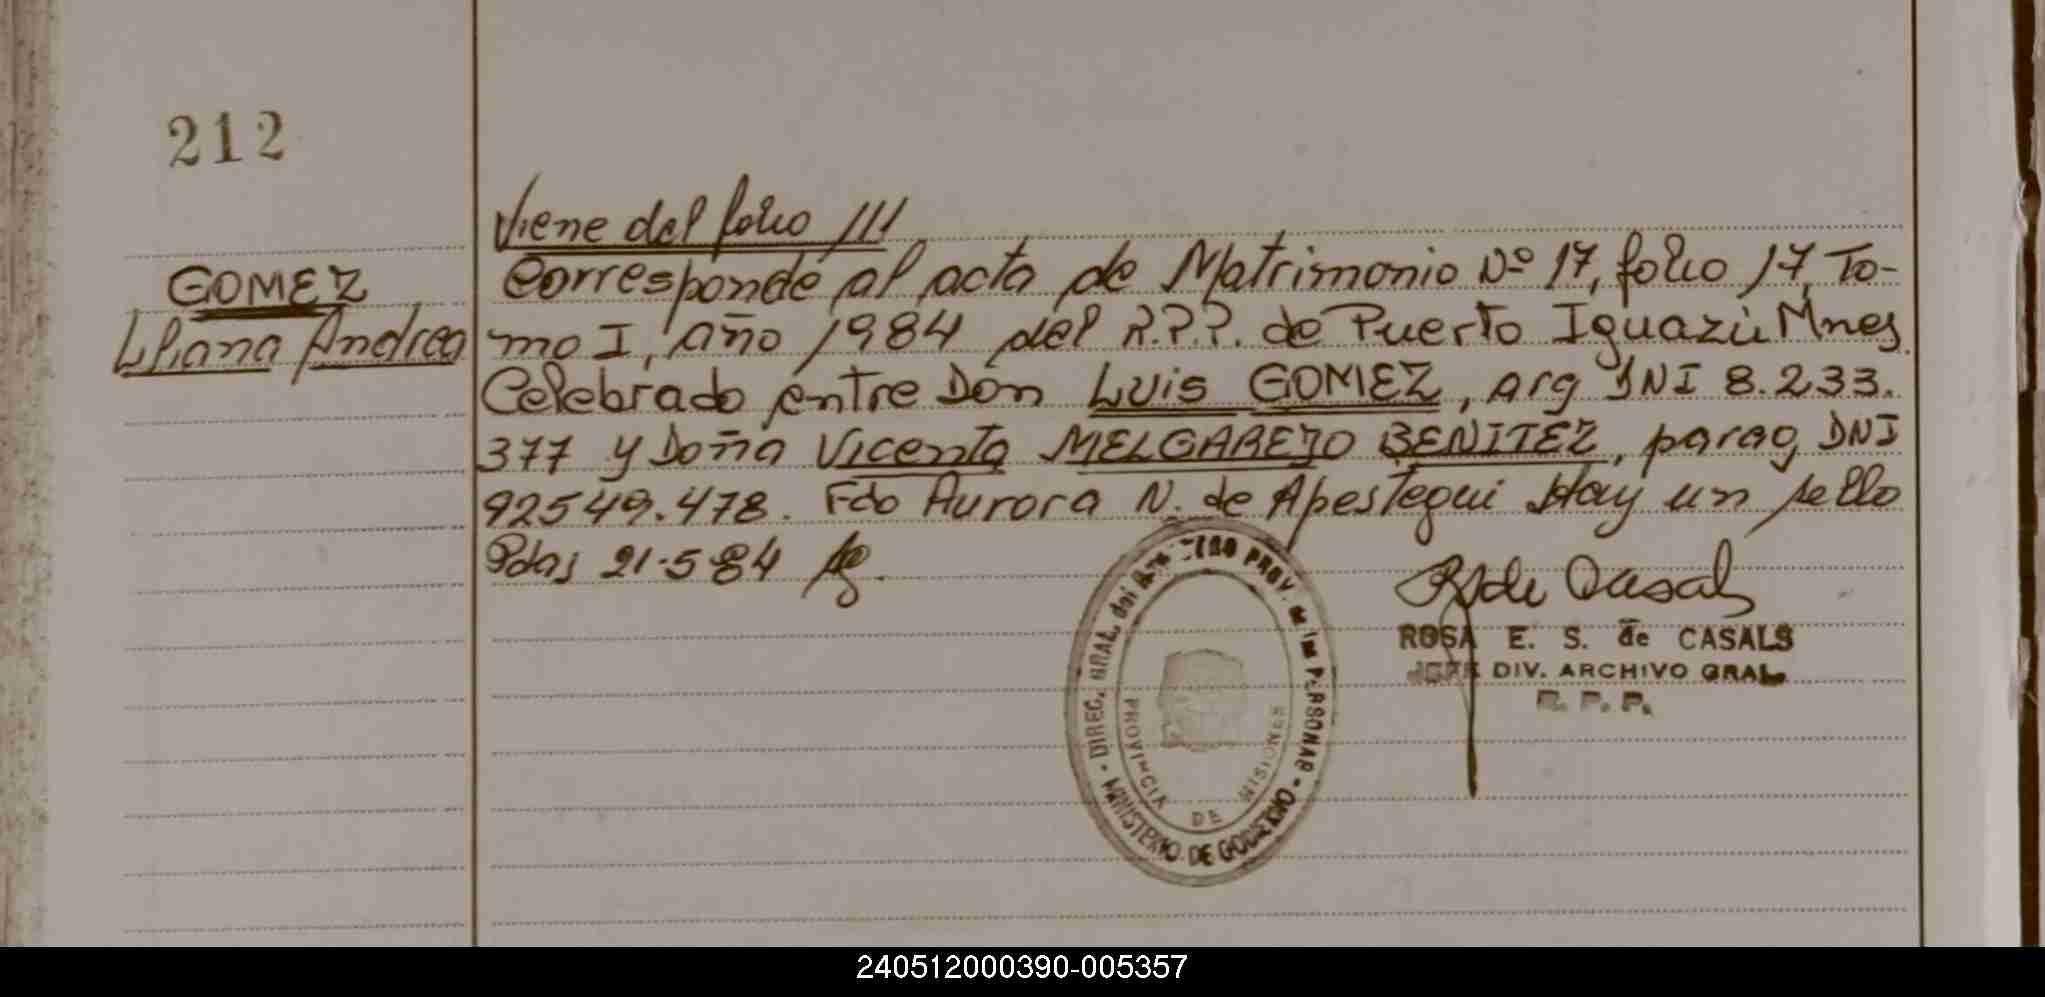 212
Viene del folio 111
GOMEZ
Liliana Andrea
Corresponde al acta de Matrimonio Nº 17, folio 17, To-
mo I, año 1984 del R.P.P. de Puerto Iguazú Mnes.
Celebrado entre Don Luis GOMEZ, arg DNI 8.233.
377 y Doña Vicenta MELGAREJO BENITEZ, parag, DNI
92549.478. Fdo Aurora N. de Apestegui Hay un sello
Pdas 21-5-84
R de Casals
ROSA E. S. de CASALS
JEFE DIV. ARCHIVO GRAL.
R. P. P.
DIREC. GRAL. del PROV. de las PERSONAS - MINISTERIO DE GOBIERNO
PROVINCIA DE MISIONES
240512000390-005357